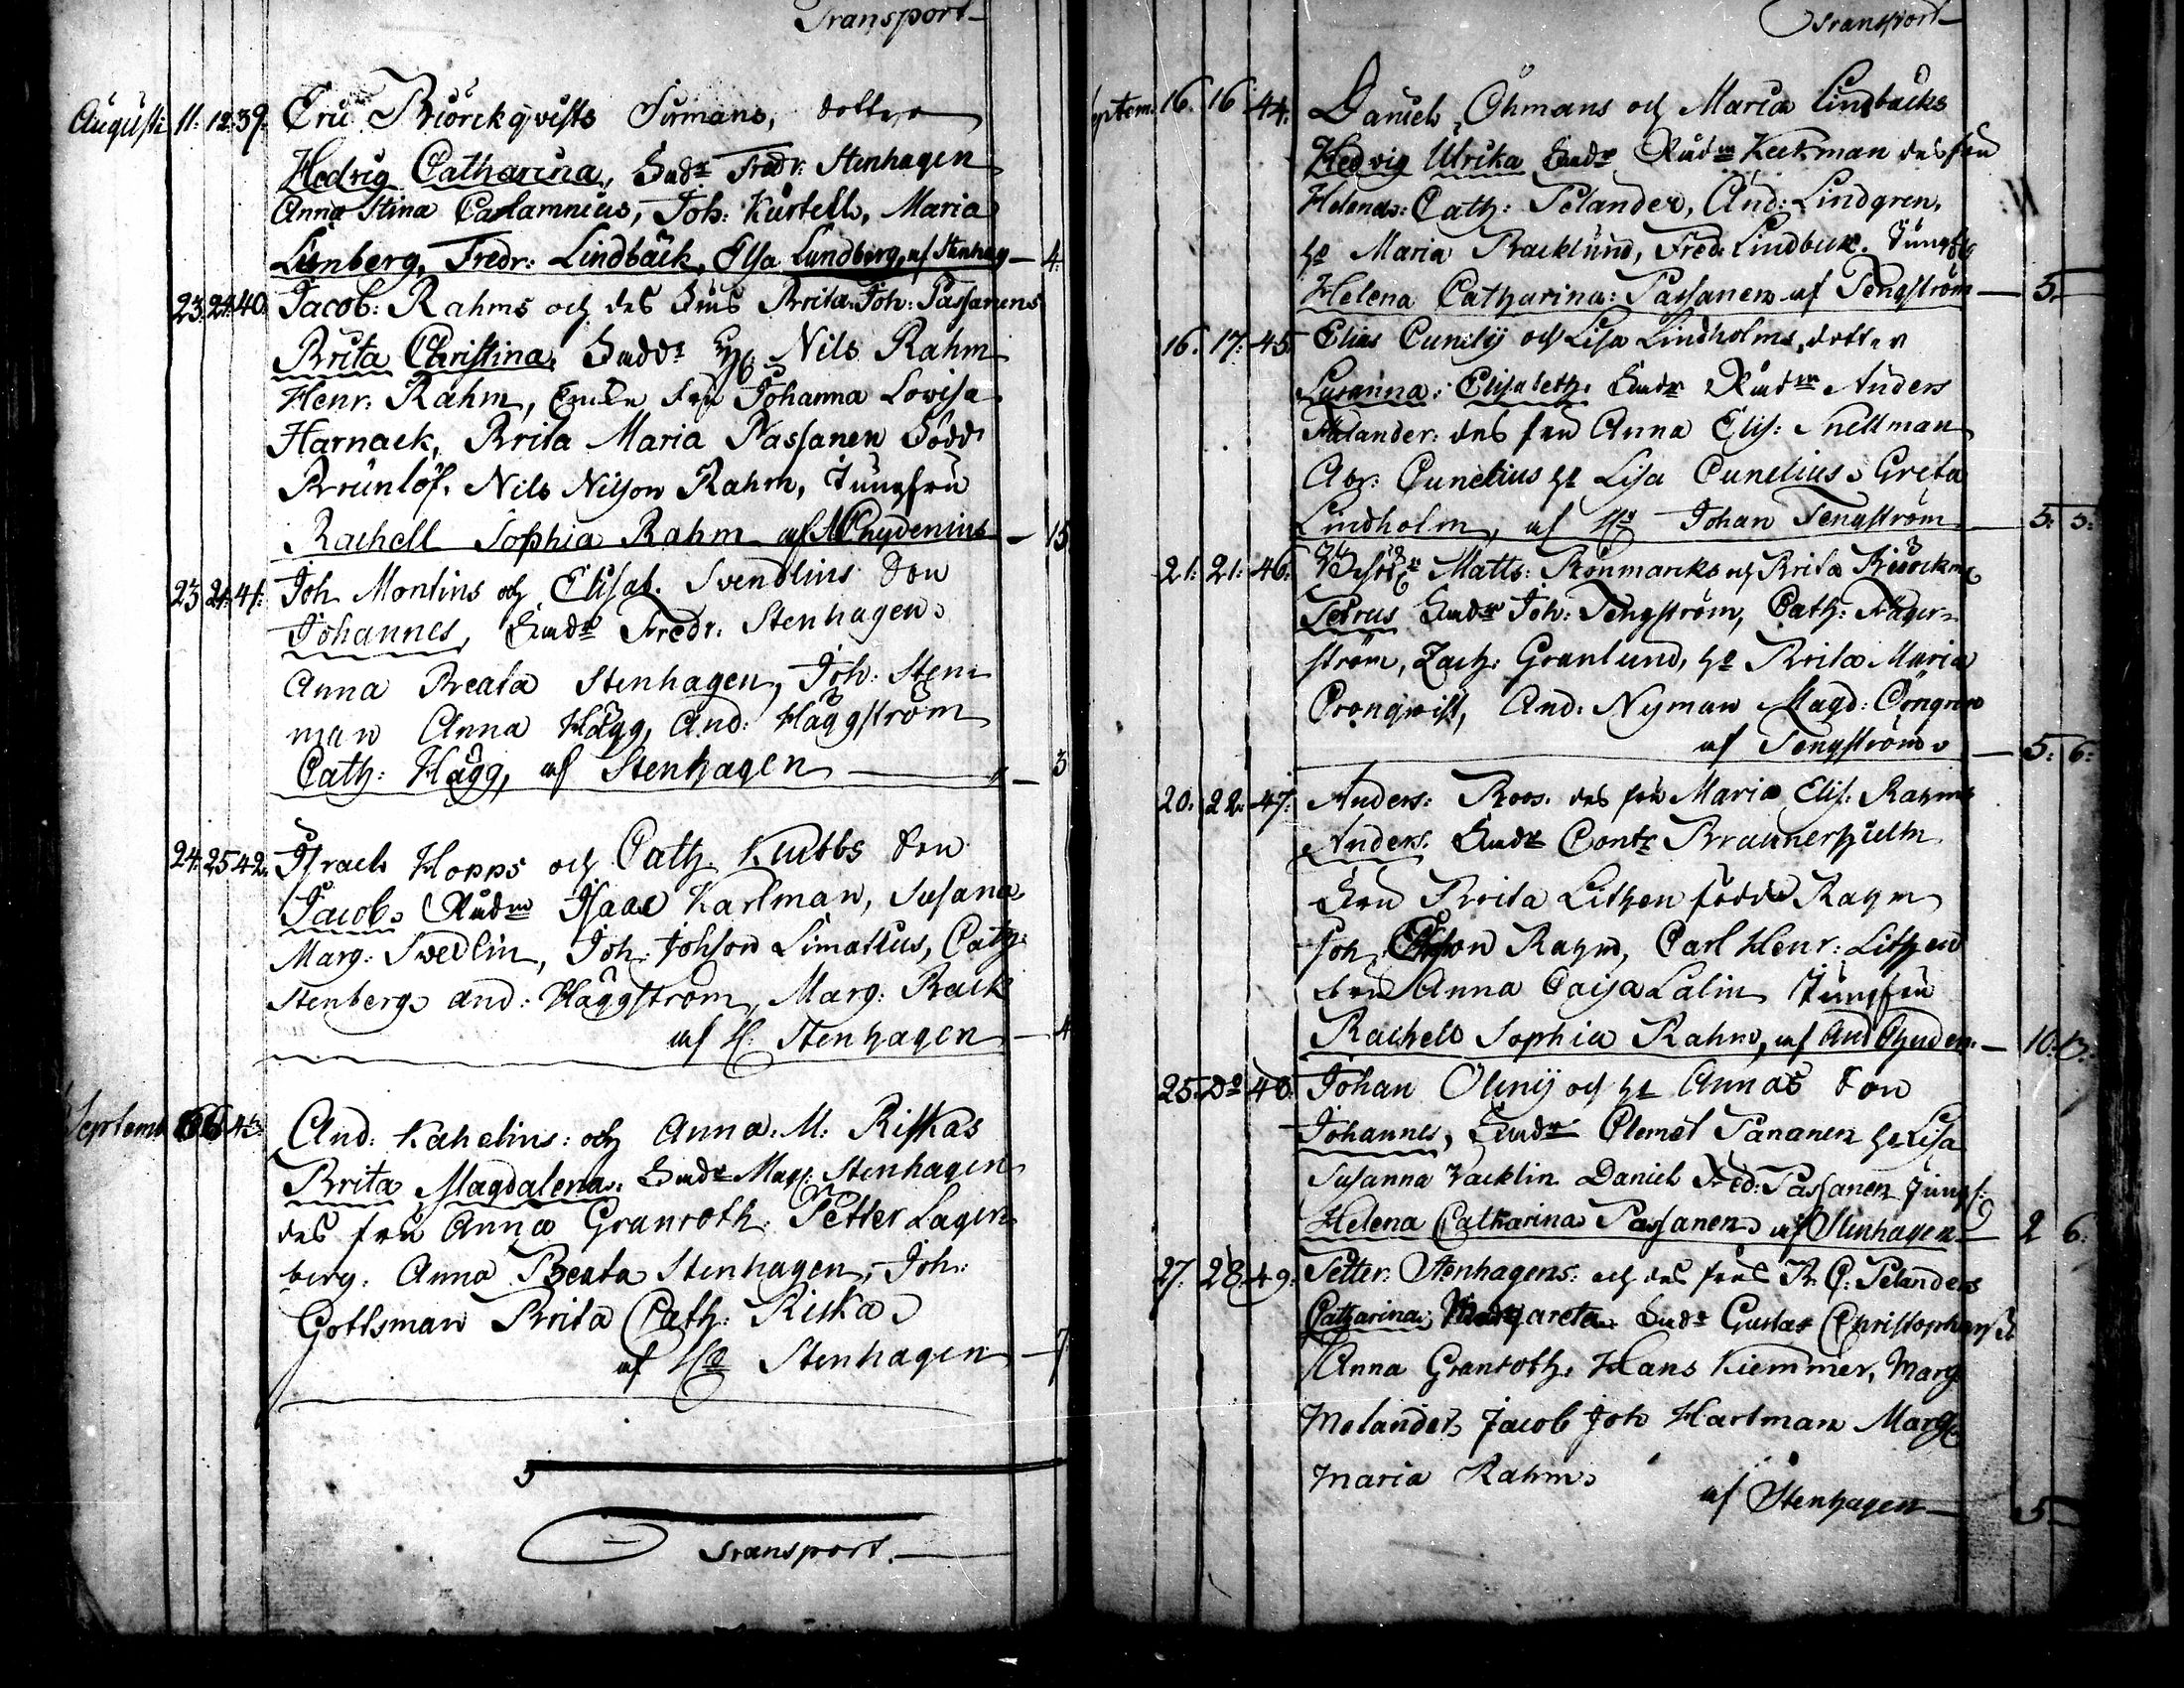 Transport
Augusti 11. 12. 39. Eric Biörckqvists Simans, dotter
Hedvig Catharina, Fadr Fredr: Stenhagen
Anna Stina Carlamnius, Joh: Kurtell, Maria
Limberg, Fredr: Lindbäck, Elsa Lundberg, af Stenhag — 4.
23. 24. 40. Jacob: Rahms och des Brita Joh: Passanens
Brita Christina, Nils Rahm
Henr: Rahm, fru Johanna Lovisa
Harnack, Brita Maria Passanen född
Brunlöf. Nils Nilson Rahm, Jungfru
Rachell Sophia Rahm af A Chydenius — 15
23 24. 41. Joh Montins och Elisab. Svendlins Son
Johannes, Fadr Fredr. Stenhagen
Anna Beata Stenhagen, Joh: Sten
man Anna Hägg, And: Häggström
Cath: Hägg, af Stenhagen — 3
24. 25 42. Israels Hopps och Cath. Kubbs Son
Jacob. Rådm Isaac Karlman, Susana
Marg: Svedlin, Joh: Johson Simatius, Cath:
Stenberg and: Häggström, Marg: Back
af H. Stenhagen — 4
Septemb 6 43. And: Kahelins: och Anna. M: Riskas
Brita Magdalena. Fadr Mag: Stenhagen
des fru Anna Granroth. Petter Lagen
berg. Anna Beata Stenhagen, Joh:
Gottsman Brita Cath: Riska
af Stenhagen — 7
Transport.
Transport
Septem. 16. 16 44. Daniels Öhmans och Maria Lindbäcks
Hedvig Ulrika Fadr Rådm Keckman des fru
Helena: Cath: Pelander, And: Lindgren,
hu Maria Backlund, Fred: Lindbeck. Jungfr
Helena Catharina: Passanen af Tengström — 5.
16. 17. 45. Elias Cunelij och Lisa Lindholms, dotter
Susanna: Elisabeth. Fadr Rådm Anders
des fru Anna Elis: Snellman
Abr: Cunelius hu Lisa Cunelius Greta
Lindholm, af Hr Johan Tengström — 5: 5:
21. 21. 46. Matts: Rönmarcks och Brita
Petrus Fadr Joh: Tengström, Cath: Fäger
ström, Zach: Granlund, hu Brita Maria
Cronqvist, And: Nyman Magd: Örngren
af Tengström — 5: 6:
20. 22. 47. Anders: Roos. des fru Maria Elis: Rahms
Anders. Fadr Contr Braunerhielm
Fru Brita Lithen född Rahm
Joh: Rahm, Carl Henr: Lithen
fru Anna Caisa Lalin Jungfru
Rachel Sophia Rahm, af And Chyden. — 10. 13.
25. Do 48. Johan Olenij och hu Annas Son
Johannes, Fadr Clemet Pananen hu Lisa
Susanna Vacklin Daniel Fred: Passanen Jungf:
Helena Catharina Passanen af Stenhagen — 2 6:
27. 28. 49. Petter: Stenhagens: och des frus B. C: Pelanders
Catharina Margareta. Fadr Gustaf Christophersen
Anna Granroth, Hans Kiemmer, Marg
Melander, Jacob Joh Hartman Marg
Maria Rahm.
af Stenhagen — 5.